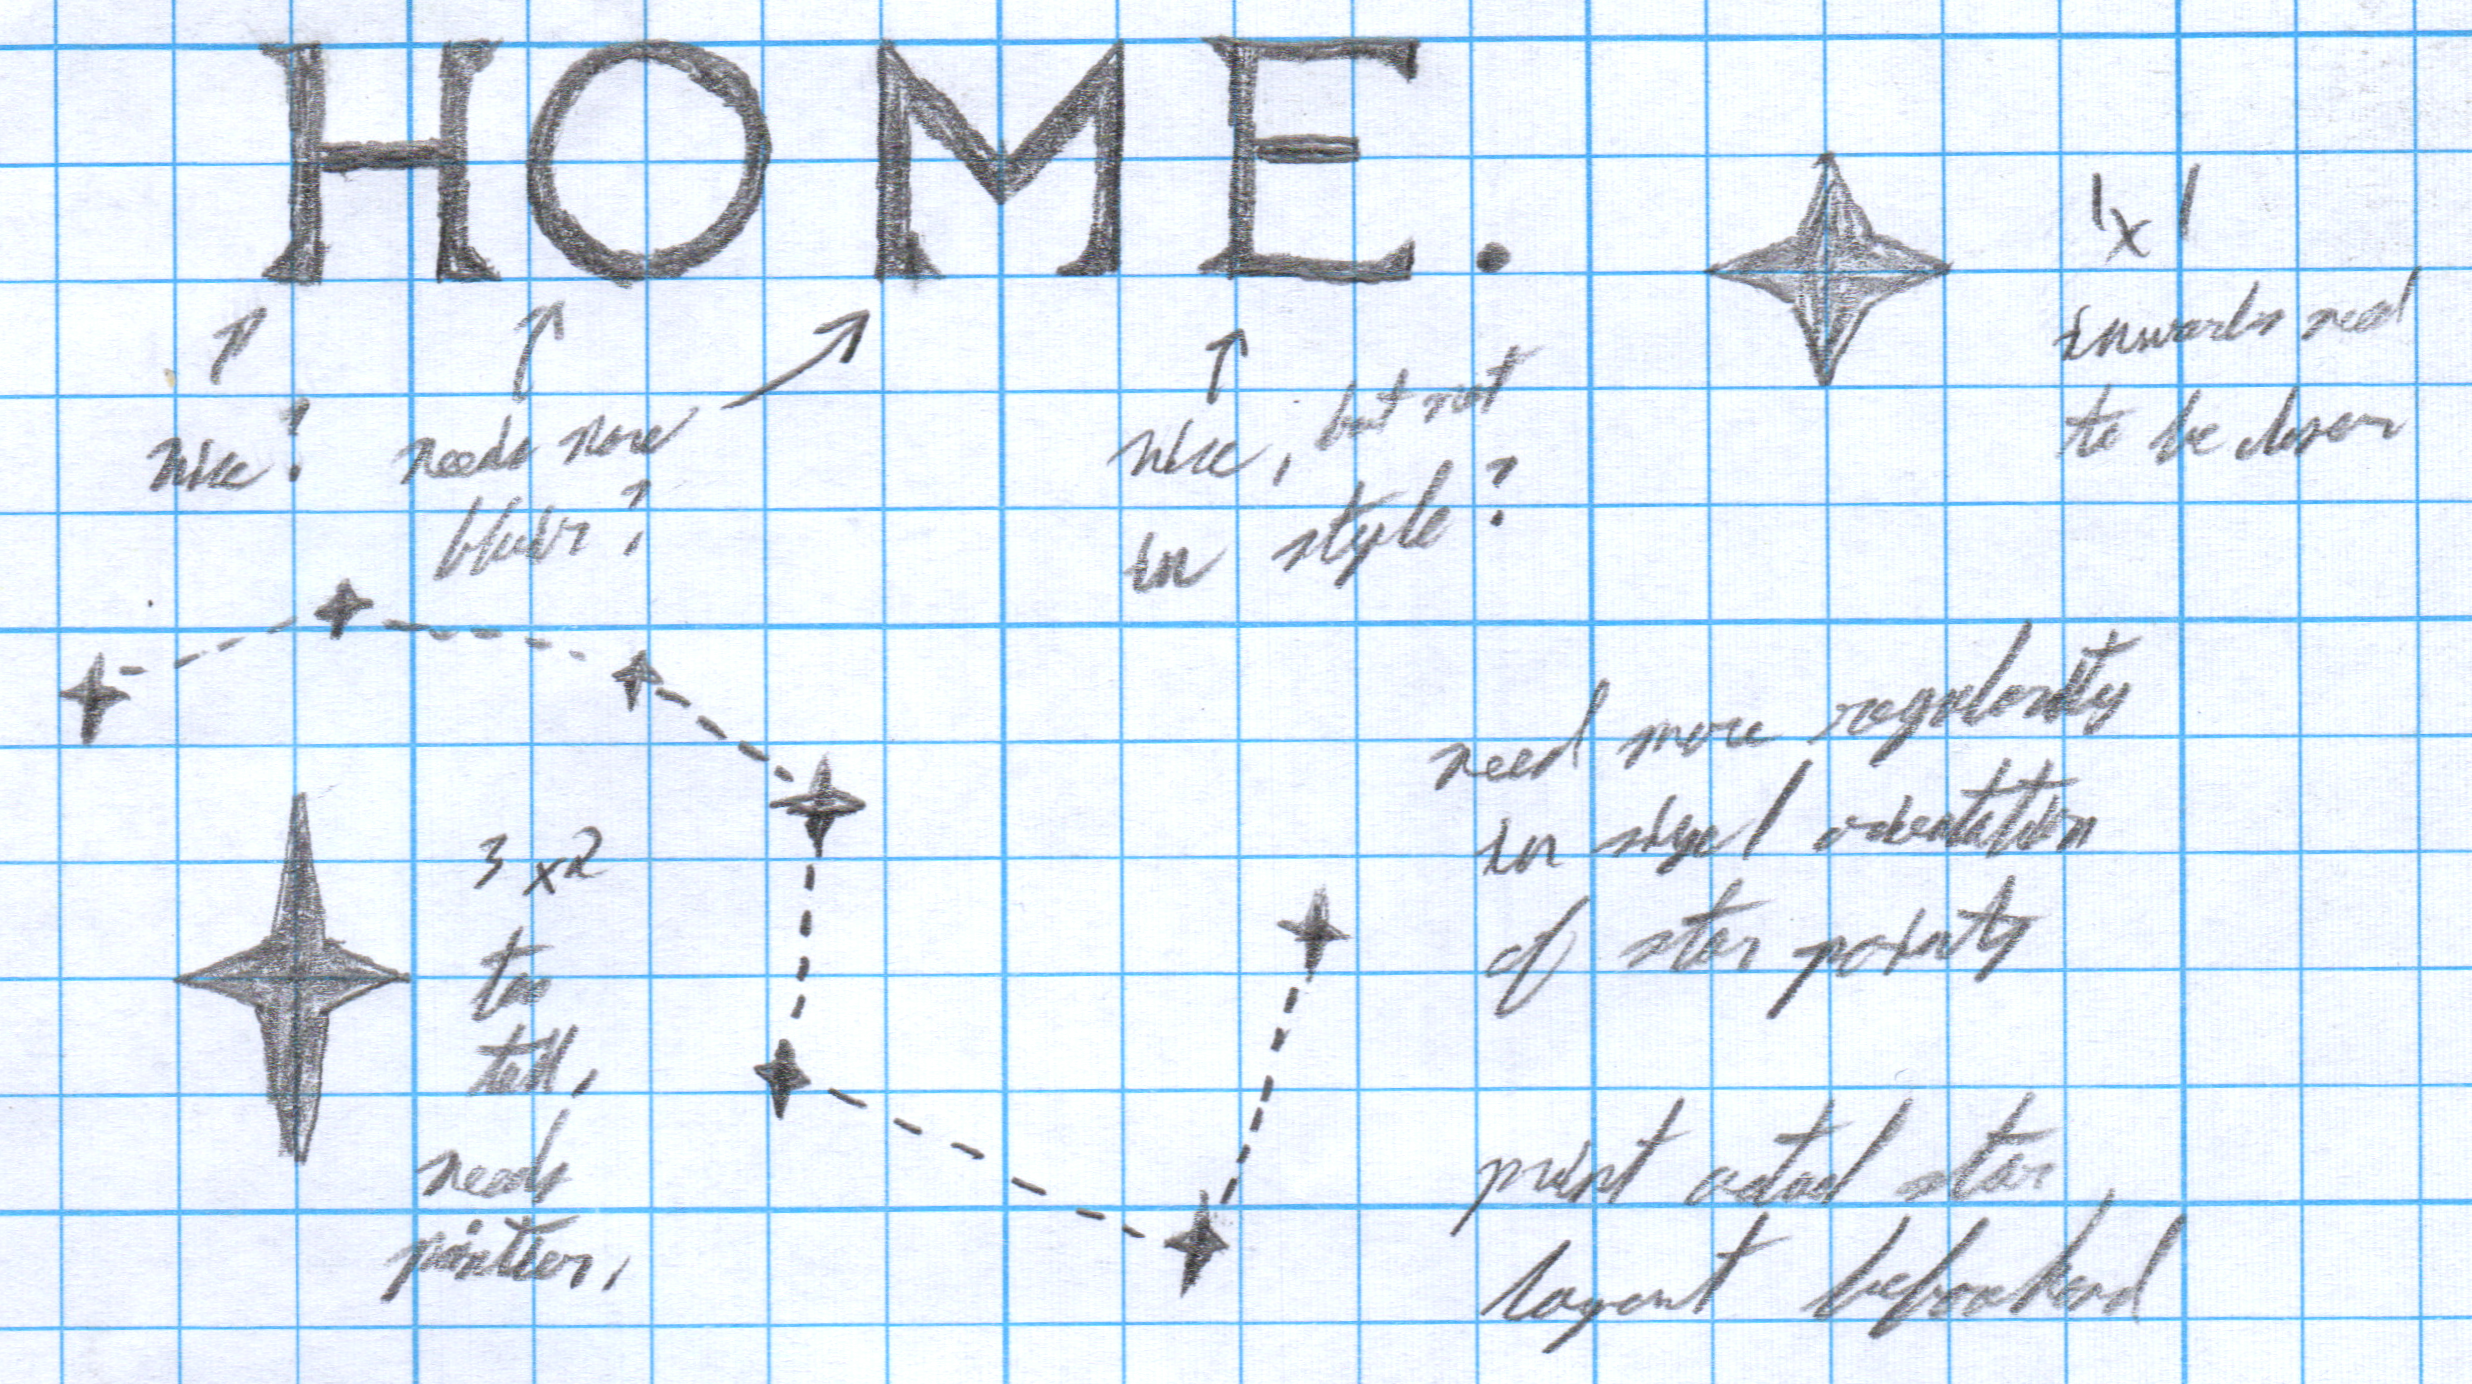 HOME.
nice!
needs more
in style?
nice, but not
1x1
inwards need
to be closer
need more regularity
in size/orientation
of star points
3x2
too
tall,
needs
pointier,
print actual star
layout beforehand